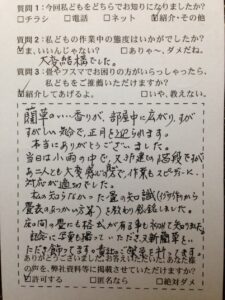 質問1:今回私どもをどちらでお知りになりましたか?
□チラシ □電話 □ネット ☑紹介・その他
質問2:私どもの作業中の態度はいかがでしたか?
☑ま、いいんじゃない? □ありゃ~、ダメだね。
大変結構でした。
質問3:畳やフスマでお困りの方がいらっしゃったら、
私どもをご推薦いただけますか?
☑紹介してあげるよ。 □いや、教えない。
藺草のいい香りが、部屋中に広がり、すが
すがしい気分で、正月を迎られます。
本当にありがとうございました。
当日は小雨の中で、又3階建の階段ですが
お二人とも大変感じ良く、作業もスピーディー、
対応が適切でした。
私の知らなかった畳の知識
畳表の
床の間の畳にも格式が有る事も初めて知りました。
記念に写真も撮っていただき又新蘭草と
ありがとうございましたお答えいただいたあなた様
の声を、弊社資料等に掲載させていただけますか?
☑許可する □匿名なら □絶対ダメ